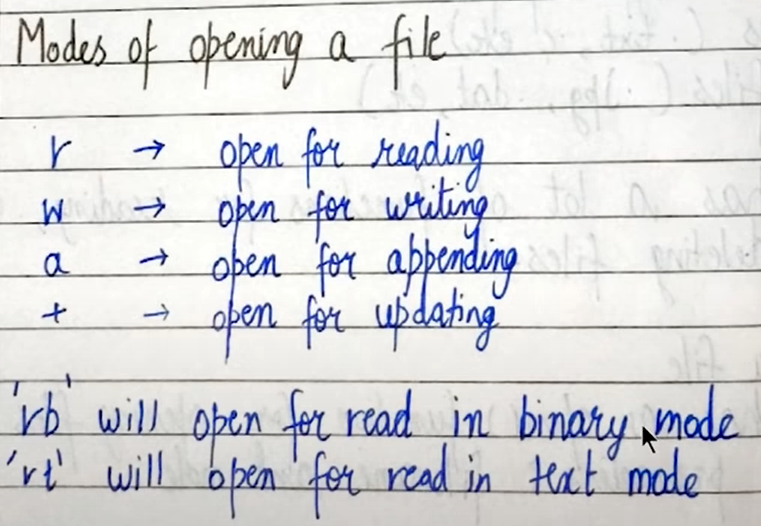 Modes of opening a file
r → open for reading
w → open for writing
a → open for appending
+ → open for updating
'rb' will open for read in binary mode
'rt' will open for read in text mode